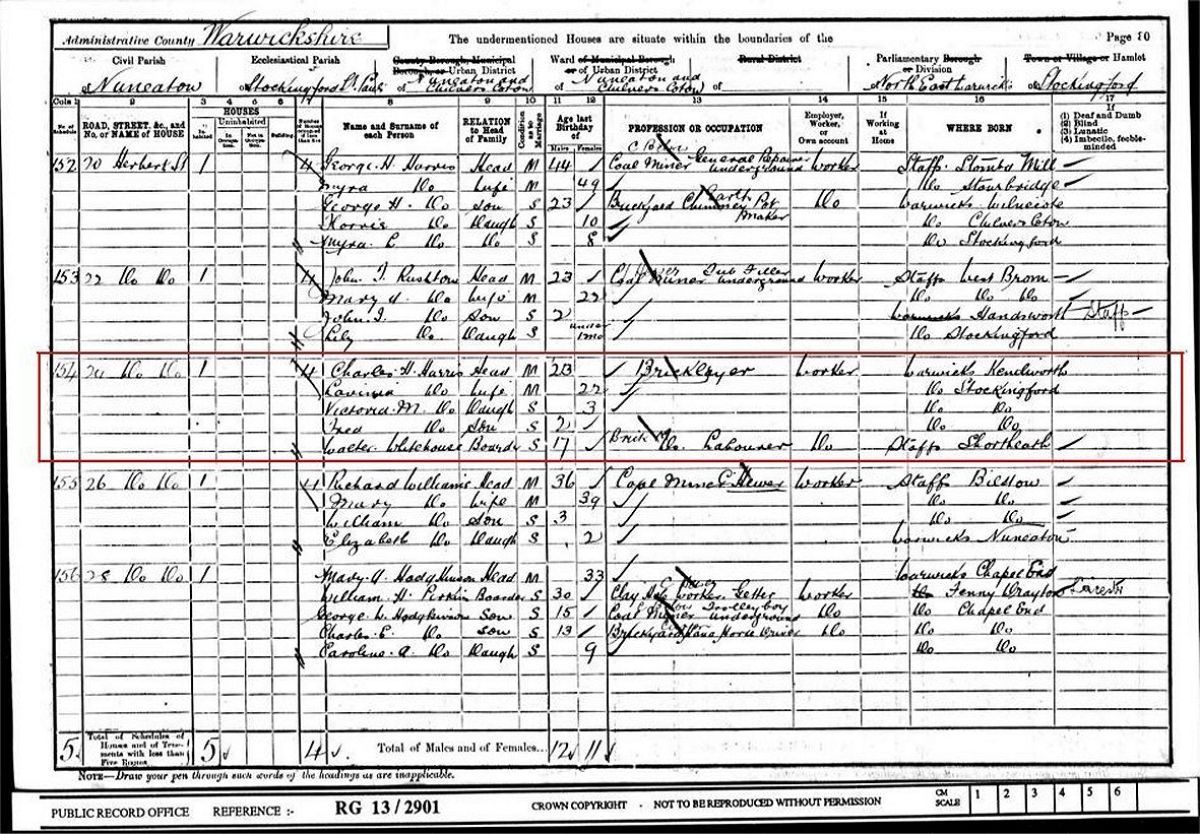 Administrative County Warwickshire The undermentioned Houses are situate within the boundaries of the Page 80
Civil Parish Ecclesiastical Parish County Borough, Municipal Borough, or Urban District Ward of Municipal Borough or of Urban District Rural District Parliamentary Borough or Division Town or Village or Hamlet
of Nuneaton of Stockingford St. Pauls of Nuneaton and Chilvers Coton of Nuneaton and Chilvers Coton of of North East Warwick of Stockingford
Cols 1 2 3 4 5 6 7 8 9 10 11 12 13 14 15 16 17
No. of Schedule ROAD, STREET, &c., and No. or NAME of HOUSE HOUSES In-habited Uninhabited In Occupation Not in Occupation Building Name and Surname of each Person RELATION to Head of Family Condition as to Marriage Age last Birthday of Males Females PROFESSION OR OCCUPATION Employer, Worker, or Own account If Working at Home WHERE BORN If (1) Deaf and Dumb (2) Blind (3) Lunatic (4) Imbecile, feeble-minded
152 20 Herbert St 1 4 George H. Harris Head M 44 Coal Miner General Repairer underground Worker Staffs
Myra Do Wife M 49 Do Stourbridge
George H. Do Son S 23 Brickyard Chimney Pot Maker Do Warwicks Wilnecote
Do Daugh S 10 Do Chilvers Coton
Myra E Do Do S 8 Do Stockingford
153 22 Do Do 1 4 John T. Rushton Head M 23 Coal Miner Tub Filler underground Worker Staffs West Brom
Mary A. Do Wife M 22 Do Do Do
John T. Do Son S 2 Warwicks Handsworth Staff
Lily Do Daugh S under 1mo Do Stockingford
154 24 Do Do 1 4 Charles H. Harris Head M 23 Bricklayer Worker Warwicks Kenilworth
Lavinia Do Wife M 22 Do Stockingford
Victoria M. Do Daugh S 3 Do Do
Fred Do Son S 2 Do Do
Walter Whitehouse Boarder S 17 Brick Do. Labourer Do Staffs Shortheath
155 26 Do Do 1 4 Richard Williams Head M 36 Coal Miner Hewer Worker Staffs Bilston
Mary Do Wife M 39 Do Do
William Do Son S 3 Do Do
Elizabeth Do Daugh S 2 Warwicks Nuneaton
156 28 Do Do 1 Mary A. Hodgkinson Head M 33 Warwicks Chapel End
William H. Perkin Boarder S 30 Clay Worker Getter Worker Fenny Drayton
George W. Hodgkinson Son S 15 Coal Miner Trolley boy underground Do Do Chapel End
Charles E. Do Son S 13 Brickyard Horse Driver Do Do Do
Caroline A. Do Daugh S 9 Do Do
5 Total of Schedules of Houses and of Tenements with less than Five Rooms 5 4 Total of Males and of Females... 12 11
NOTE—Draw your pen through such words of the headings as are inapplicable.
PUBLIC RECORD OFFICE REFERENCE :- RG 13/2901 CROWN COPYRIGHT - NOT TO BE REPRODUCED WITHOUT PERMISSION CM SCALE 1 2 3 4 5 6